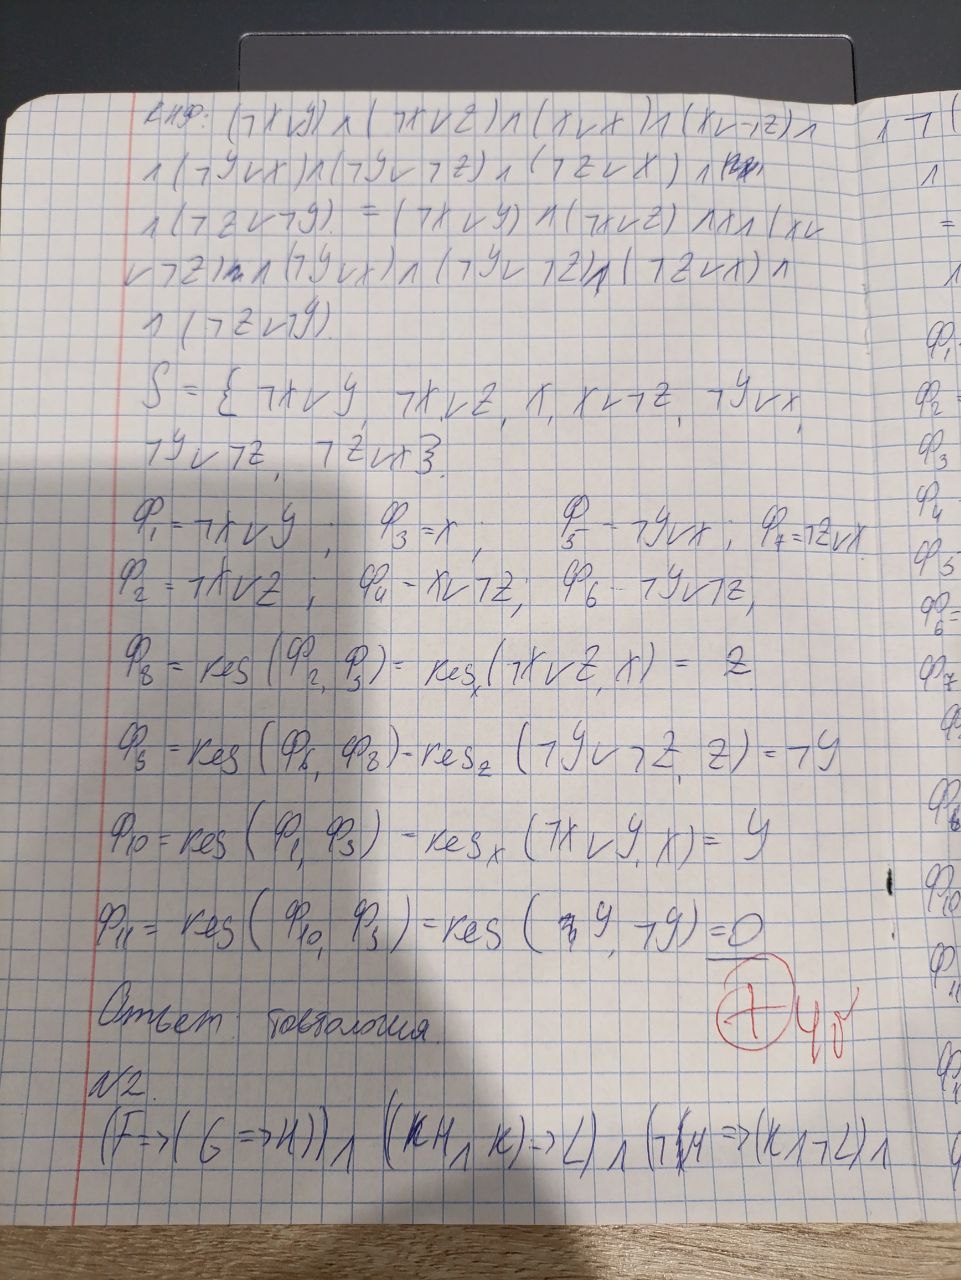 КНФ: (¬x∨y)∧(¬x∨z)∧(x∨x)∧(x∨¬z)∧
∧(¬y∨x)∧(¬y∨¬z)∧(¬z∨x)∧
∧(¬z∨¬y) = (¬x∨y)∧(¬x∨z)∧x∧(x∨
∨¬z)∧(¬y∨x)∧(¬y∨¬z)∧(¬z∨x)∧
∧(¬z∨¬y).
S = {¬x∨y, ¬x∨z, x, x∨¬z, ¬y∨x,
¬y∨¬z, ¬z∨x}.
Φ₁ = ¬x∨y; Φ₃ = x; Φ₅ = ¬y∨x; Φ₇ = ¬z∨x
Φ₂ = ¬x∨z; Φ₄ = x∨¬z; Φ₆ = ¬y∨¬z,
Φ₈ = res(Φ₂, Φ₃) = resₓ(¬x∨z, x) = z
Φ₉ = res(Φ₆, Φ₈) = res_z(¬y∨¬z, z) = ¬y
Φ₁₀ = res(Φ₁, Φ₃) = resₓ(¬x∨y, x) = y
Φ₁₁ = res(Φ₁₀, Φ₉) = res(y, ¬y) = 0
Ответ: тавтология.
+ 4б
N2.
(F=>(G=>H))∧((H∧K)=>L)∧(¬H=>(K∧¬L)∧
∧¬(
∧
=
∧
Φ₁
Φ₂=
Φ₃
Φ₄
Φ₅
Φ₆=
Φ₇
Φ₁₀